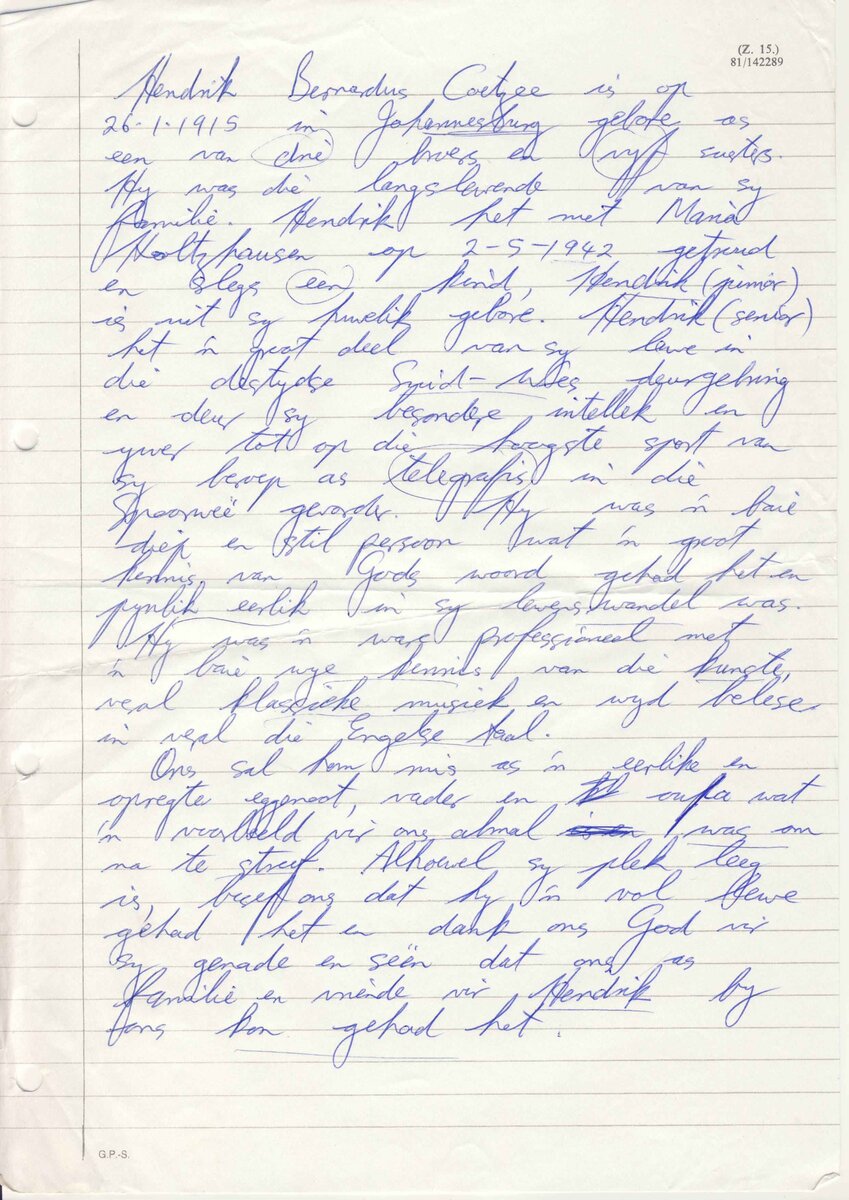 (Z. 15.)
81/142289
Hendrik Bernardus Coetzee is op
26-1-1915 in Johannesburg gebore as
een van drie broers en vyf susters.
Hy was die langslewende van sy
familie. Hendrik het met Maria
Holtzhausen op 2-5-1942 getroud
en slegs een kind, Hendrik (junior)
is uit sy huwelik gebore. Hendrik (senior)
het 'n groot deel van sy lewe in
die destydse Suid-Wes deurgebring
en deur sy besondere intellek en
ywer tot op die hoogste sport van
sy beroep as telegrafis in die
Spoorweë gevorder. Hy was 'n baie
diep en stil persoon wat 'n groot
kennis van Gods woord gehad het en
pynlik eerlik in sy lewenswandel was.
Hy was 'n ware professioneel met
'n baie wye kennis van die kunste,
veral klassieke musiek en wyd belese
in veral die Engelse taal.
Ons sal hom mis as 'n eerlike en
opregte eggenoot, vader en oupa wat
'n voorbeeld vir ons almal was om
na te streef. Alhoewel sy plek leeg
is, besef ons dat hy 'n vol lewe
gehad het en dank ons God vir
sy genade en seën dat ons as
familie en vriende vir Hendrik by
ons kon gehad het.
G.P.-S.